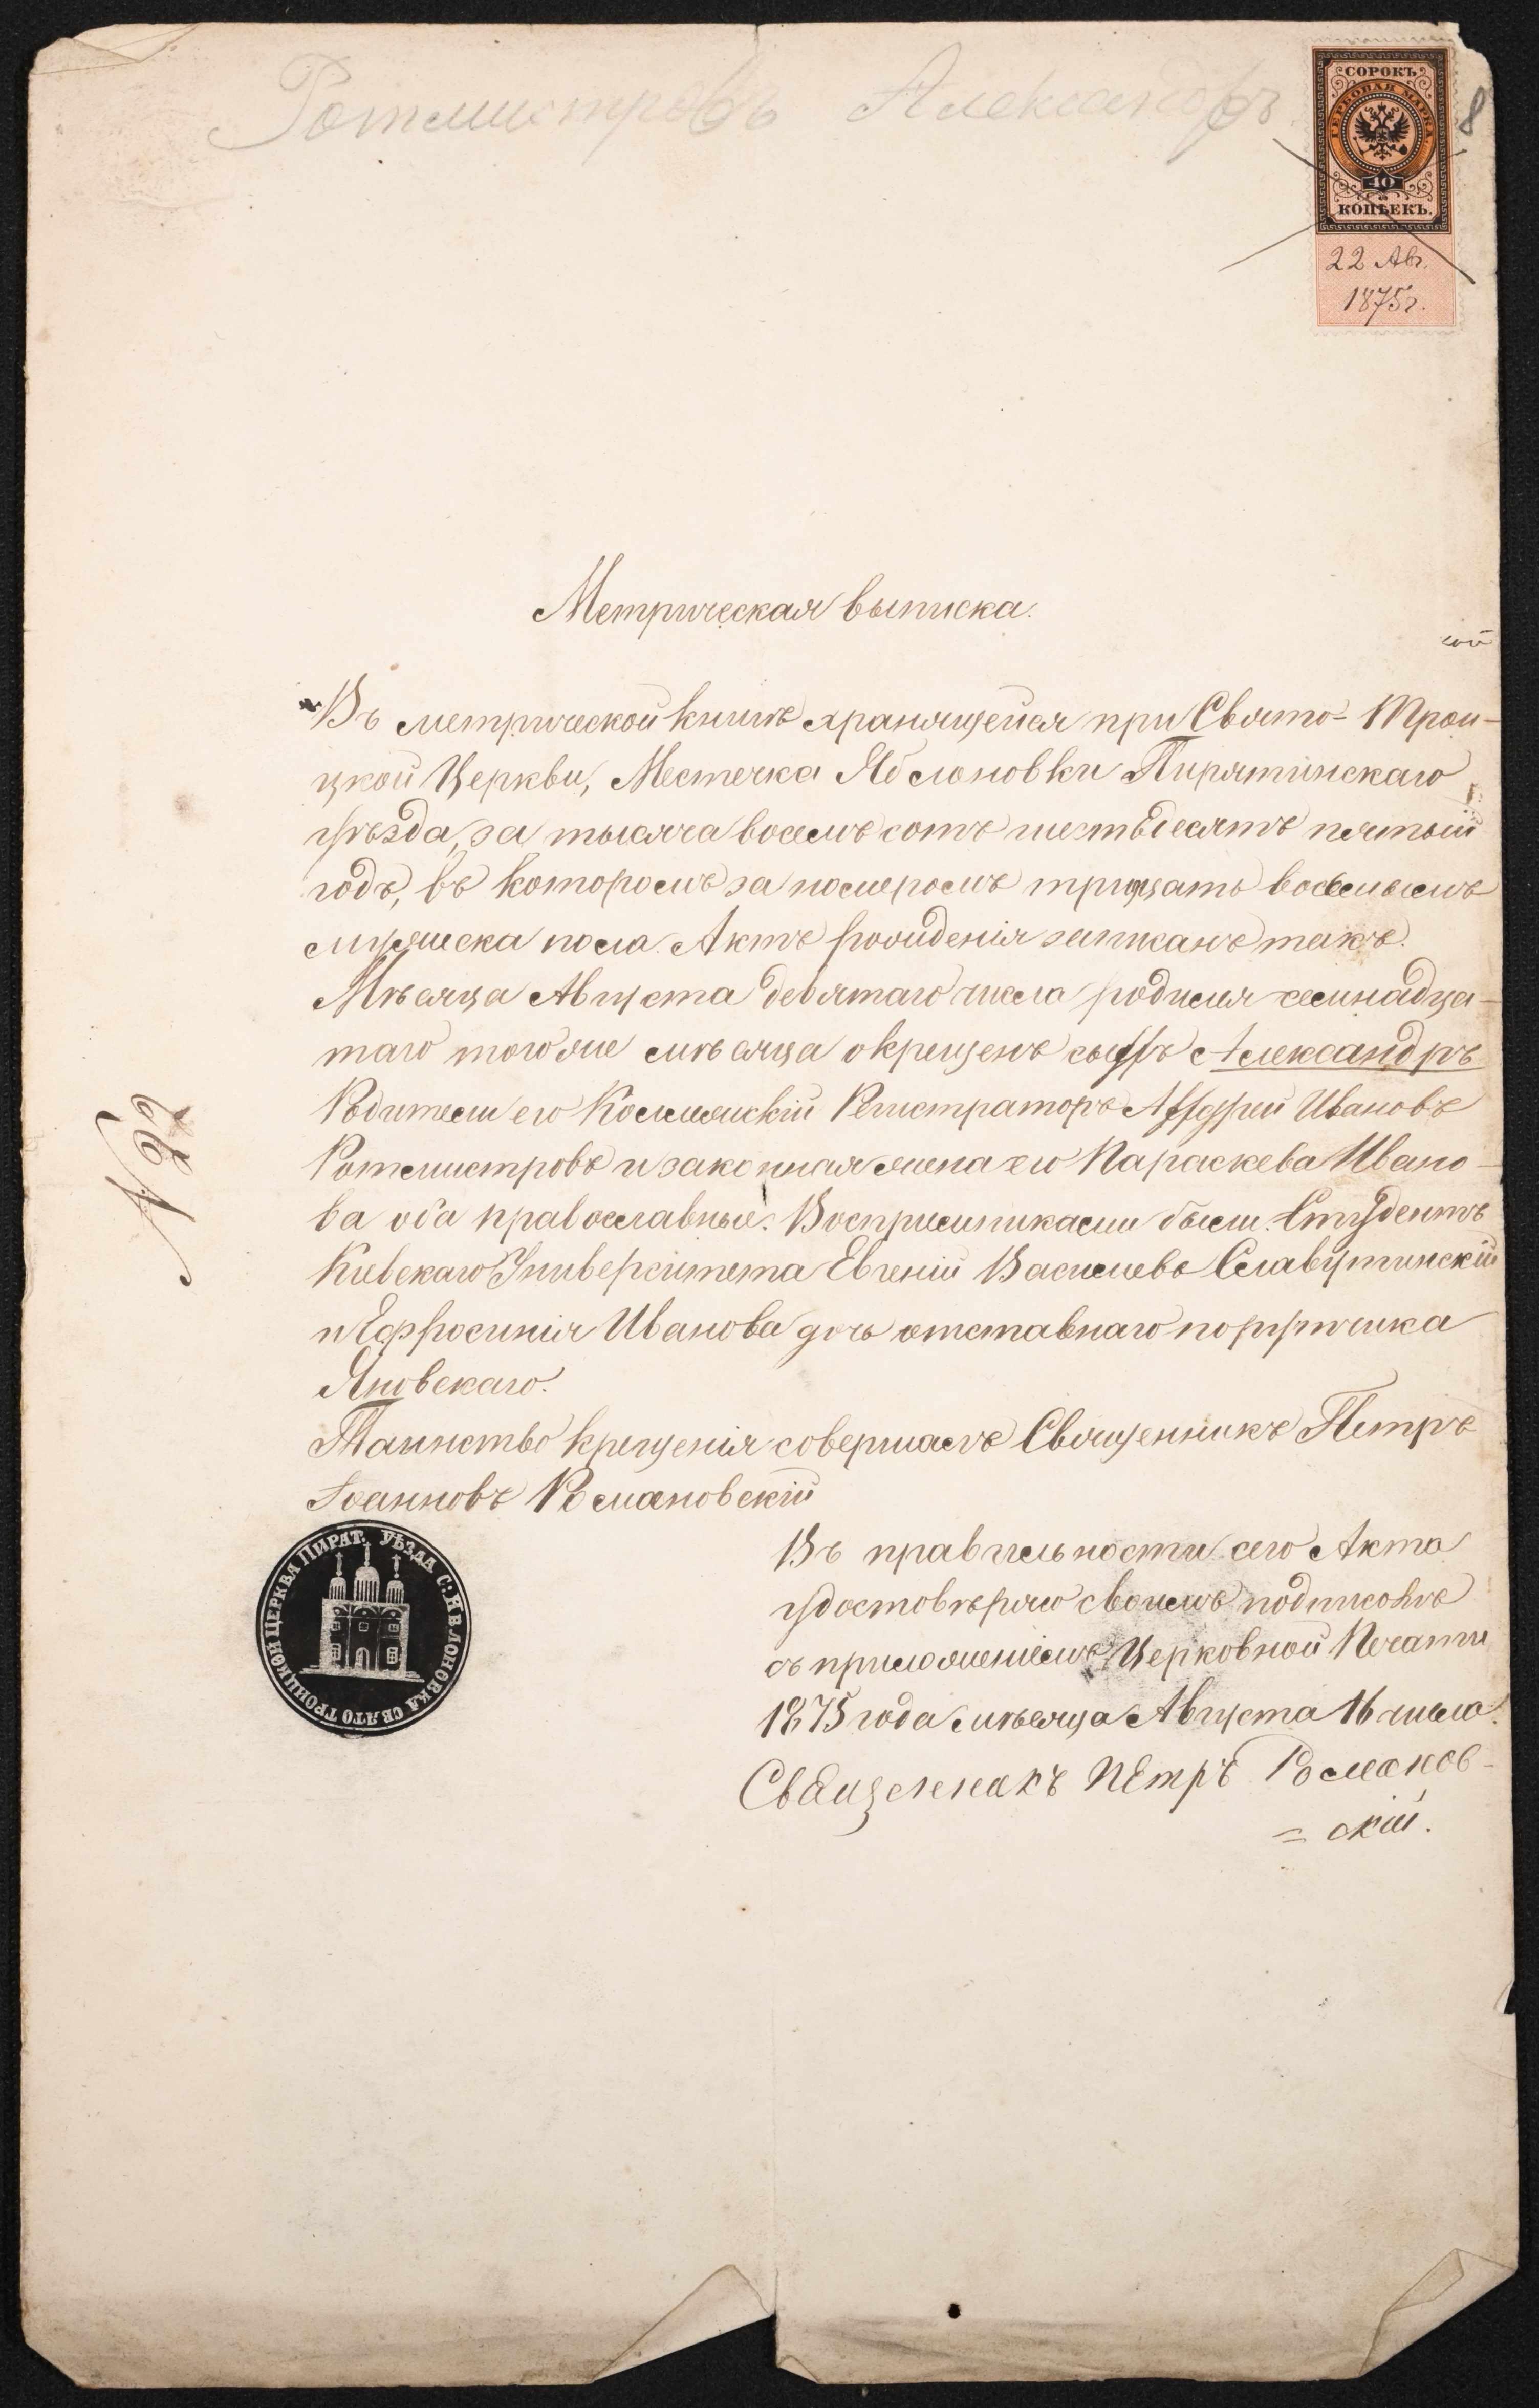 Ротмистровъ Александръ
8
СОРОКЪ
ГЕРБОВАЯ МАРКА
40
КОПѢЕКЪ.
22 Авг.
1875 г.
Метрическая выписка.
Въ метрической книге хранящейся при Свято-Трои-
цкой Церкви, Местечка Яблоновки Пирятинскаго
уѣзда, за тысяча восемъ сотъ шестьдесятъ пятый
годъ, въ которомъ за номеромъ тридцать восьмымъ
мужеска пола. Актъ рожденія записанъ такъ.
Мѣсяца Августа девятаго числа родился семнадца-
таго того же мѣсяца окрещенъ сынъ Александръ
Родители его Коллежскій Регистраторъ Андрей Ивановъ
Ротмистровъ и законная жена его Параскева Ивано-
ва оба православные. Воспріемниками были. Студентъ
Кіевскаго Университета Евгеній Васильевъ Славутинскій
и Ефросинія Иванова дочь отставнаго поручика
Яновскаго.
Таинство крещенія совершалъ Священникъ Петръ
Іоанновъ Романовскій
№ 92
Въ правильности сего Акта
удостовѣряю своимъ подписомъ
съ приложеніемъ Церковной Печати
1875 года мѣсяца Августа 16 числа.
Священникъ Петръ Романов-
=скій.
ПИРАТ. УѢЗДА С: ЯБЛОНОВКА СВЯТО ТРОИЦКОЙ ЦЕРКВА